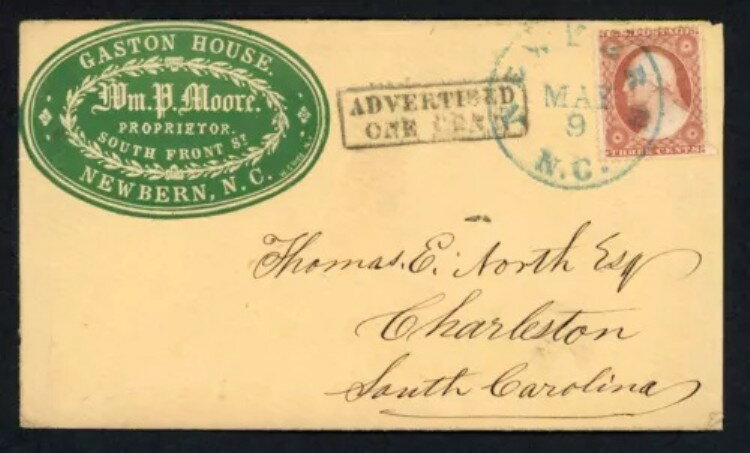 GASTON HOUSE.
Wm. P. Moore.
PROPRIETOR.
SOUTH FRONT ST
NEWBERN, N.C.
ADVERTISED
ONE CENT
NEWBERN
MAR
9
N.C.
THREE CENTS
Thomas. E. North Esq
Charleston
South Carolina